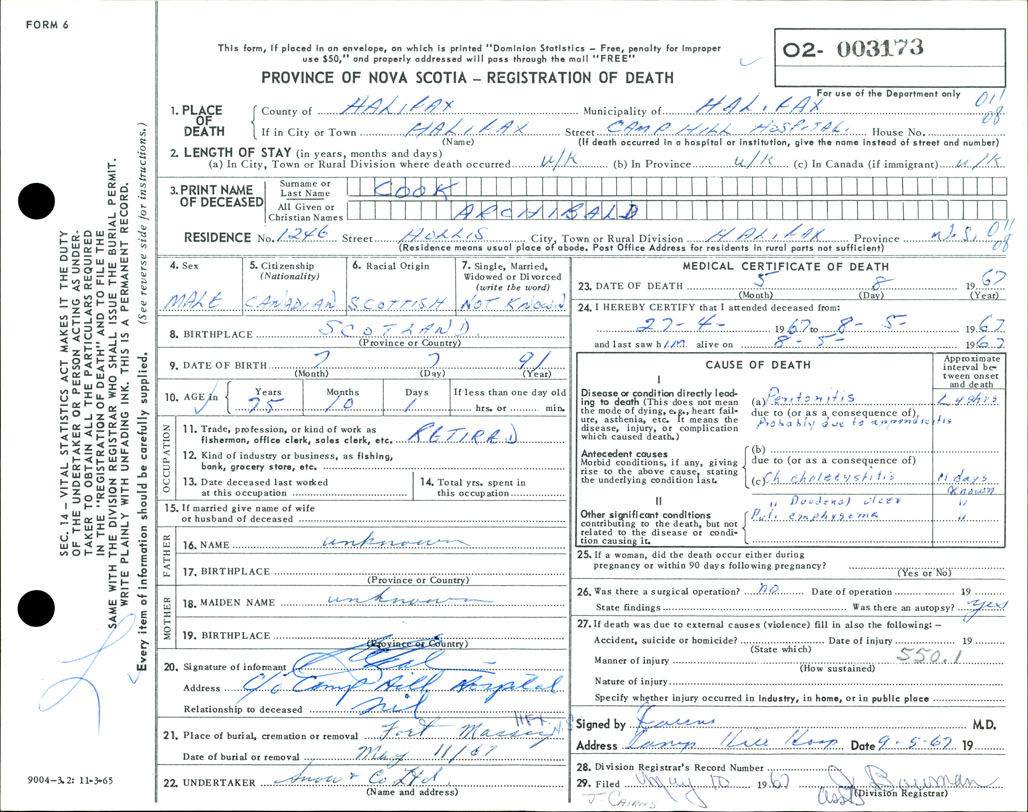 FORM 6
This form, if placed in an envelope, on which is printed "Dominion Statistics – Free, penalty for improper
use $50," and properly addressed will pass through the mail "FREE"
PROVINCE OF NOVA SCOTIA – REGISTRATION OF DEATH
02- 003173
For use of the Department only
011
08
1. PLACE OF DEATH
County of HALIFAX Municipality of HALIFAX
If in City or Town HALIFAX Street CAMP HILL HOSPITAL. House No.
(Name) (If death occurred in a hospital or institution, give the name instead of street and number)
2. LENGTH OF STAY (in years, months and days)
(a) In City, Town or Rural Division where death occurred u/k (b) In Province u/k (c) In Canada (if immigrant) u/k
3. PRINT NAME OF DECEASED
Surname or Last Name COOK
All Given or Christian Names ARCHIBALD
RESIDENCE No. 1246 Street HOLLIS City, Town or Rural Division HALIFAX Province N.S. 011
08
(Residence means usual place of abode. Post Office Address for residents in rural parts not sufficient)
4. Sex
MALE
5. Citizenship
(Nationality)
CANADIAN
6. Racial Origin
SCOTTISH
7. Single, Married,
Widowed or Divorced
(write the word)
NOT KNOWN
8. BIRTHPLACE SCOTLAND
(Province or Country)
9. DATE OF BIRTH 7 7 91
(Month) (Day) (Year)
10. AGE in
Years Months Days If less than one day old
75 10 1 hrs. or min.
OCCUPATION
11. Trade, profession, or kind of work as
fisherman, office clerk, sales clerk, etc. RETIRED
12. Kind of industry or business, as fishing,
bank, grocery store, etc.
13. Date deceased last worked
at this occupation
14. Total yrs. spent in
this occupation
15. If married give name of wife
or husband of deceased
FATHER
16. NAME unknown
17. BIRTHPLACE
(Province or Country)
MOTHER
18. MAIDEN NAME unknown
19. BIRTHPLACE
(Province or Country)
20. Signature of informant
Address c/o Camp Hill Hospital
Relationship to deceased nil
21. Place of burial, cremation or removal Fort Massey Hfx N.S.
Date of burial or removal May 11/67
22. UNDERTAKER Snow & Co Ltd.
(Name and address)
MEDICAL CERTIFICATE OF DEATH
23. DATE OF DEATH 5 8 1967
(Month) (Day) (Year)
24. I HEREBY CERTIFY that I attended deceased from:
27-4- 1967 to 8-5- 1967
and last saw him alive on 8-5- 1967
CAUSE OF DEATH
Approximate
interval be-
tween onset
and death
I
Disease or condition directly lead-
ing to death (This does not mean
the mode of dying, e.g., heart fail-
ure, asthenia, etc. It means the
disease, injury, or complication
which caused death.)
(a) Peritonitis
due to (or as a consequence of)
Probably due to appendicitis
Antecedent causes
Morbid conditions, if any, giving
rise to the above cause, stating
the underlying condition last.
(b)
due to (or as a consequence of)
(c) Ch. cholecystitis 11 days
known
" Duodenal ulcer "
II
Other significant conditions
contributing to the death, but not
related to the disease or condi-
tion causing it.
Pul. emphysema "
25. If a woman, did the death occur either during
pregnancy or within 90 days following pregnancy?
(Yes or No)
26. Was there a surgical operation? no Date of operation 19
State findings Was there an autopsy? yes
27. If death was due to external causes (violence) fill in also the following: –
Accident, suicide or homicide? Date of injury 19
(State which)
Manner of injury 550.1
(How sustained)
Nature of injury
Specify whether injury occurred in industry, in home, or in public place
Signed by M.D.
Address Camp Hill Hosp Date 9-5-67 19
28. Division Registrar's Record Number
29. Filed May 10 1967 Bowman
J Cairns Asst (Division Registrar)
SEC. 14 – VITAL STATISTICS ACT MAKES IT THE DUTY
OF THE UNDERTAKER OR PERSON ACTING AS UNDER-
TAKER TO OBTAIN ALL THE PARTICULARS REQUIRED
IN THE "REGISTRATION OF DEATH" AND TO FILE THE
SAME WITH THE DIVISION REGISTRAR WHO SHALL ISSUE THE BURIAL PERMIT.
WRITE PLAINLY WITH UNFADING INK. THIS IS A PERMANENT RECORD.
Every item of information should be carefully supplied. (See reverse side for instructions.)
9004-3.2: 11-3-65